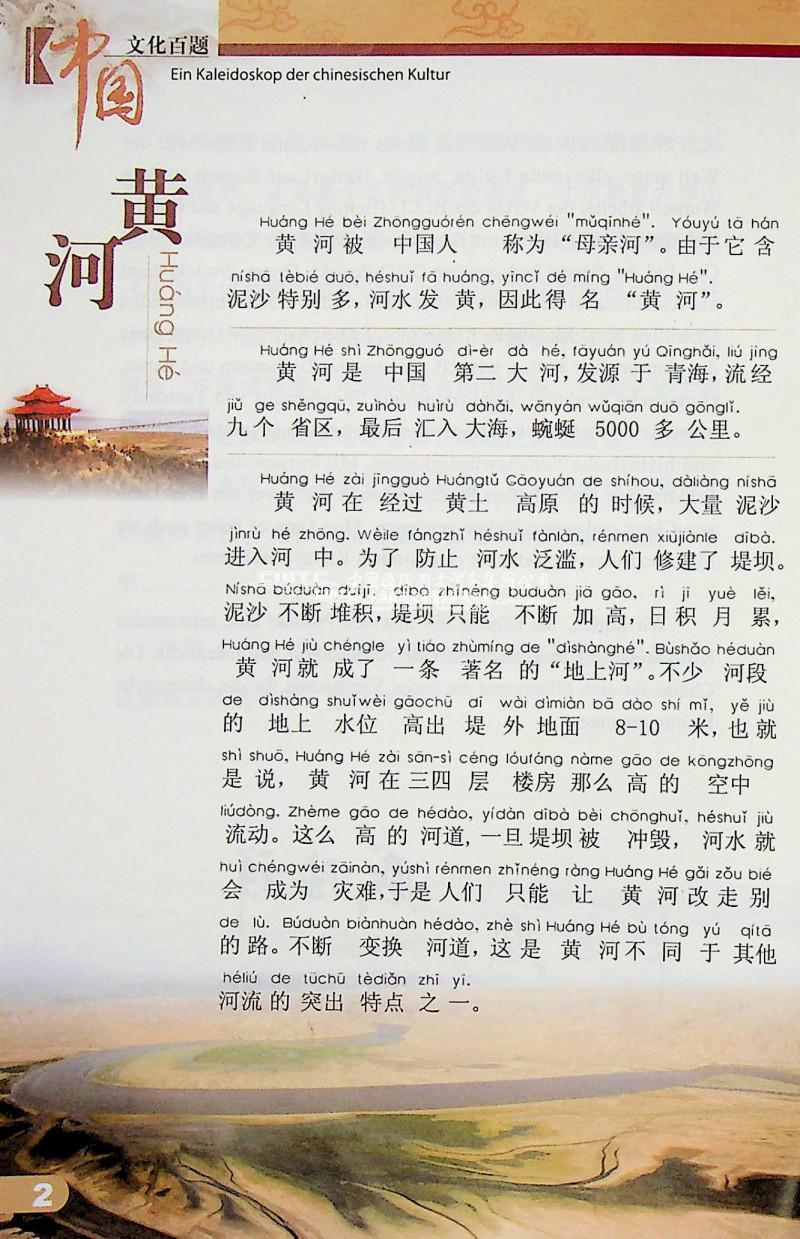 中国
文化百题
Ein Kaleidoskop der chinesischen Kultur
黄河
Huáng Hé
Huáng Hé bèi Zhōngguórén chēngwéi "mǔqīnhé". Yóuyú tā hán
黄河被中国人称为“母亲河”。由于它含
níshā tèbié duō, héshuǐ fā huáng, yīncǐ dé míng "Huáng Hé".
泥沙特别多，河水发黄，因此得名“黄河”。
Huáng Hé shì Zhōngguó dì-èr dà hé, fāyuán yú Qīnghǎi, liú jīng
黄河是中国第二大河，发源于青海，流经
jiǔ ge shěngqū, zuìhòu huìrù dàhǎi, wānyán wǔqiān duō gōnglǐ.
九个省区，最后汇入大海，蜿蜒 5000 多公里。
Huáng Hé zài jīngguò Huángtǔ Gāoyuán de shíhou, dàliàng níshā
黄河在经过黄土高原的时候，大量泥沙
jìnrù hé zhōng. Wèile fángzhǐ héshuǐ fànlàn, rénmen xiūjiànle dībà.
进入河中。为了防止河水泛滥，人们修建了堤坝。
Níshā búduàn duījī, dībà zhǐnéng búduàn jiā gāo, rì jī yuè lěi,
泥沙不断堆积，堤坝只能不断加高，日积月累，
Huáng Hé jiù chéngle yì tiáo zhùmíng de "dìshànghé". Bùshǎo héduàn
黄河就成了一条著名的“地上河”。不少河段
de dìshàng shuǐwèi gāochū dī wài dìmiàn bā dào shí mǐ, yě jiù
的地上水位高出堤外地面 8-10 米，也就
shì shuō, Huáng Hé zài sān-sì céng lóufáng nàme gāo de kōngzhōng
是说，黄河在三四层楼房那么高的空中
liúdòng. Zhème gāo de hédào, yídàn dībà bèi chōnghuǐ, héshuǐ jiù
流动。这么高的河道，一旦堤坝被冲毁，河水就
huì chéngwéi zāinàn, yúshì rénmen zhǐnéng ràng Huáng Hé gǎi zǒu bié
会成为灾难，于是人们只能让黄河改走别
de lù. Búduàn biànhuàn hédào, zhè shì Huáng Hé bù tóng yú qítā
的路。不断变换河道，这是黄河不同于其他
héliú de tūchū tèdiǎn zhī yī.
河流的突出特点之一。
2